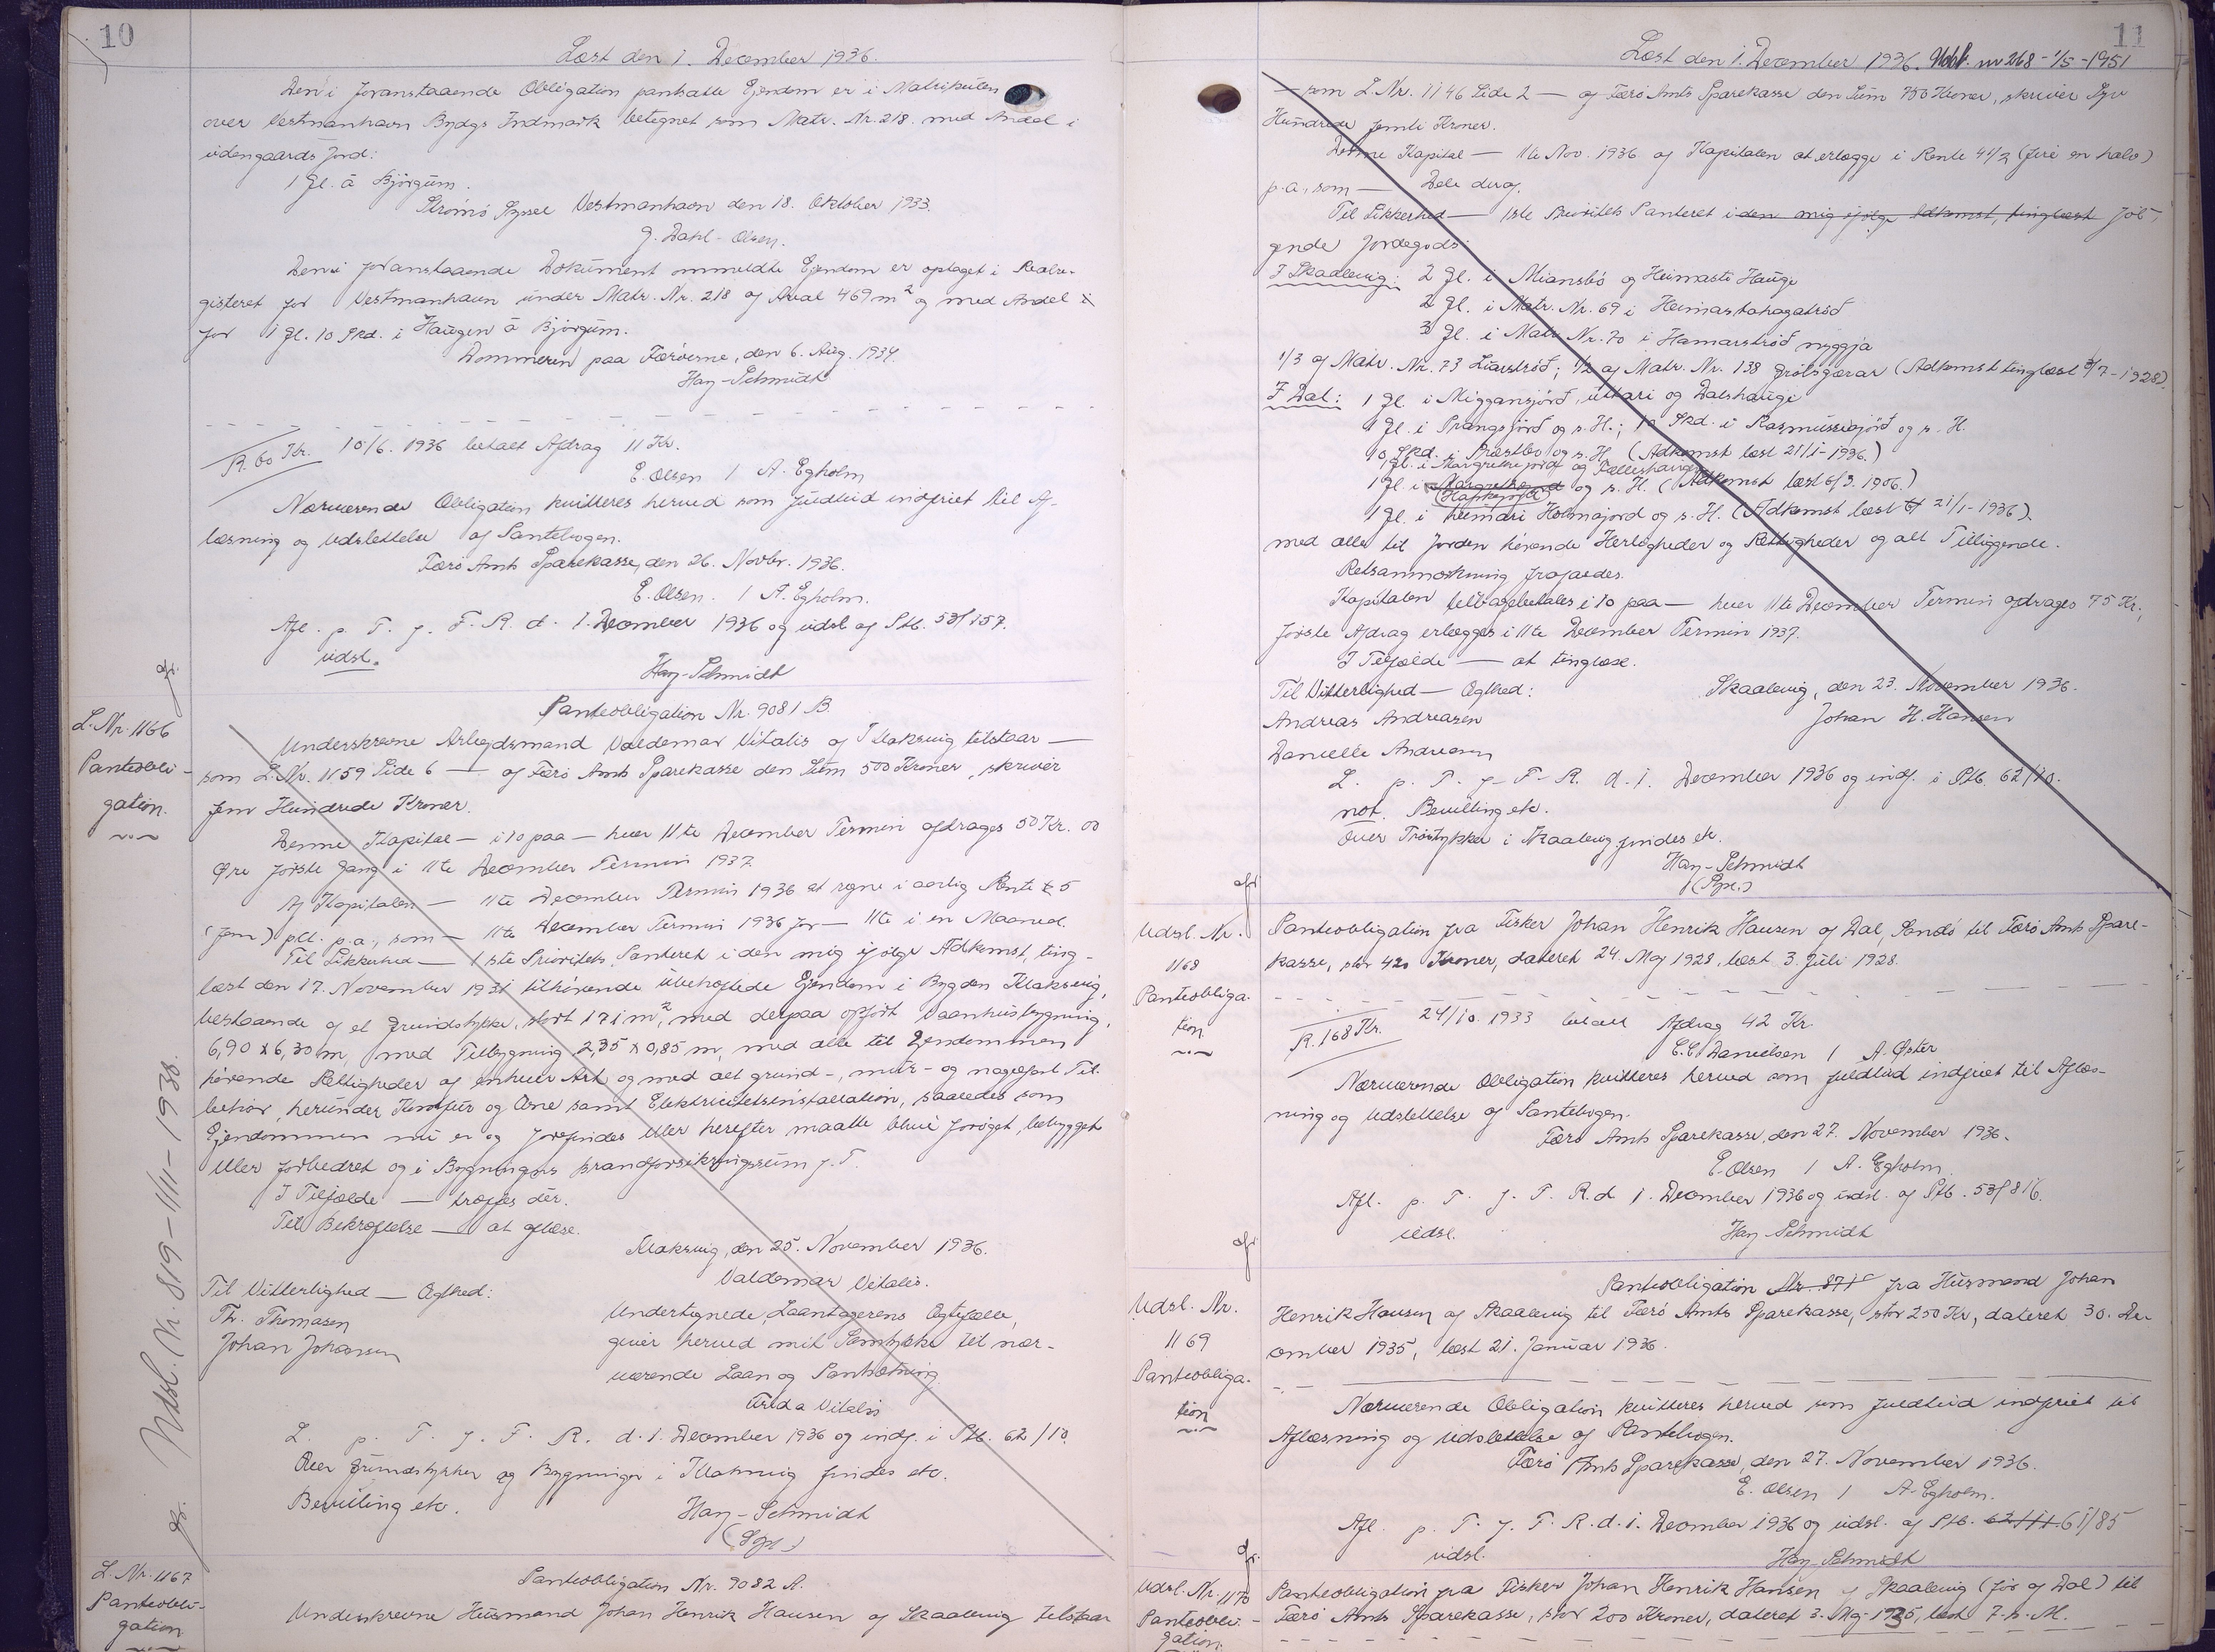 10
Læst den 1. December 1936.
Den i foranstaaende Obligation pantsatte Ejendom er i Matrikulen
over Vestmanhavn Bygds Indmark betegnet som Matr. Nr. 218. med Andel i
udengaards Jord:
1 Gl. á Bjørgum.
Strømø Syssel Vestmanhavn den 18. Oktober 1933.
G. Dahl-Olsen.
Den i foranstaaende Dokument ommeldte Ejendom er optaget i Realre-
gisteret for Vestmanhavn under Matr. Nr. 218 af Areal 469 m² og med Andel
for 1 Gl. 10 Skd. i Haugen á Bjørgum.
Dommeren paa Færøerne, den 6. Aug. 1934.
Hay-Schmidt
R. 60 Kr. 10/6. 1936 betalt Afdrag 11 Kr.
E. Olsen / A. Egholm
Nærværende Obligation kvitteres herved som fuldtud indfriet til Af-
læsning og Udslettelse af Pantebogen.
Færø Amts Sparekasse, den 26. Novbr. 1936.
E. Olsen. / A. Egholm.
Afl. p. T. f. F. R. d. 1. December 1936 og udsl. af Ptb. 53/157.
udsl.
Hay-Schmidt
L. Nr. 1166
Panteobli-
gation.
Panteobligation Nr. 9081 B.
Underskrevne Arbejdsmand Valdemar Vitalis af Klaksvig tilstaar —
som L. Nr. 1159 Side 6 — af Færø Amts Sparekasse den Sum 500 Kroner, skriver
fem Hundrede Kroner.
Denne Kapital — i 10 paa — hver 11te December Termin afdrages 50 Kr. 00
Øre første Gang i 11te December Termin 1937.
Af Kapitalen — 11te December Termin 1936 at regne i aarlig Rente 5
(fem) pCt. p.a., som — 11te December Termin 1936 for — 11te i en Maaned.
Til Sikkerhed — 1ste Prioritets Panteret i den mig ifølge Adkomst, ting-
læst den 17. November 1931 tilhørende ubehæftede Ejendom i Bygden Klaksvig,
bestaaende af et Grundstykke, stort 171 m², med derpaa opført Vaaningsbygning,
6,90 x 6,30 m, med Tilbygning 2,35 x 0,85 m, med alle til Ejendommen
hørende Rettigheder af enhver Art og med alt grund-, mur- og nagelfast Til-
behør, herunder Komfur og Ovne samt Elektricitetsinstallation, saaledes som
Ejendommen nu er og forefindes eller herefter maatte blive forøget, bebygget
eller forbedret og i Bygningens Brandforsikringssum f. T.
I Tilfælde — træffes dér.
Til Bekræftelse — at aflæse.
Klaksvig, den 25. November 1936.
Valdemar Vitalis.
Til Vitterlighed — Ægthed:
Th. Thomasen
Johan Johansen
Undertegnede, Laantagerens Ægtefælle,
giver herved mit Samtykke til nær-
værende Laan og Pantsætning.
Frida Vitalis
L. p. T. f. F. R. d. 1. December 1936 og indf. i Ptb. 62/10.
Over Grundstykker og Bygninger i Klaksvig findes etc.
Bevilling etc.
Hay-Schmidt
Udsl. Nr. 819 - 1/11 - 1938.
L. Nr. 1167
Panteobli-
gation
Panteobligation Nr. 9082 A.
Underskrevne Husmand Johan Henrik Hansen af Skaalevig tilstaar
11
Læst den 1. December 1936. Udsl. nr 268 - 1/5 - 1951
— som L. Nr. 1146 Side 2 — af Færø Amts Sparekasse den Sum 750 Kroner, skriver Syv
Hundrede femti Kroner.
Denne Kapital — 11te Nov. 1936 af Kapitalen at erlægge i Rente 4 1/2 (fire en halv)
p.a., som — Dele deraf.
Til Sikkerhed — 1ste Prioritets Panteret i den mig ifølge Adkomst, tinglæst føl-
gende Jordegods:
I Skaalevig: 2 Gl. i Miansbø og Heimasti Hauge
2 Gl. i Matr. Nr. 69 i Heimastahagatrøð
3 Gl. i Matr. Nr. 70 i Hamarstrøð nyggja
1/3 af Matr. Nr. 73 Liarstrøð; 1/2 af Matr. Nr. 138 Grótsgærar (Adkomst tinglæst 3/7-1928).
I Dal: 1 Gl. i Miggansjørð, úttari og Dalshauge
1 Gl. i Prangsjørð og s. H.; 10 Skd. i Rasmussajørð og s. H.
10 Skd. i Præstbo og s. H. (Adkomst læst 21/1-1936.)
1 Gl. i Margrethejord og Fælleshaugen
1 Gl. i og s. H. (Adkomst læst 6/3. 1906.)
1 Gl. i heimari Holmajord og s. H. (Adkomst læst 21/1-1936).
med alle til Jorden hørende Herligheder og Rettigheder og alt Tilliggende.
Retsanmærkning frafaldes.
Kapitalen tilbagebetales i 10 paa — hver 11te December Termin afdrages 75 Kr.;
første Afdrag erlægges i 11te December Termin 1937.
I Tilfælde — at tinglæse.
Til Vitterlighed — Ægthed:
Skaalevig, den 23. November 1936.
Andreas Andreasen
Johan H. Hansen
Danielle Andreasen
L. p. T. f. F. R. d. 1. December 1936 og indf. i Ptb. 62/10.
not. Bevilling etc.
Over Trøstykker i Skaalevig findes etc.
Hay-Schmidt
Udsl. Nr.
1168
Panteobliga-
tion
Panteobligation fra Fisker Johan Henrik Hansen af Dal, Sandø til Færø Amts Spare-
kasse, stor 420 Kroner, dateret 24. Maj 1928, læst 3. Juli 1928.
R. 168 Kr. 24/10. 1933 betalt Afdrag 42 Kr.
C.C. Danielsen / A. Øster
Nærværende Obligation kvitteres herved som fuldtud indfriet til Aflæs-
ning og Udslettelse af Pantebogen.
Færø Amts Sparekasse, den 27. November 1936.
E. Olsen / A. Egholm.
Afl. p. T. f. F. R. d. 1. December 1936 og udsl. af Ptb. 53/816.
udsl.
Hay-Schmidt
Udsl. Nr.
1169
Panteobliga-
tion
Panteobligation Nr. 871 fra Husmand Johan
Henrik Hansen af Skaalevig til Færø Amts Sparekasse, stor 250 Kr, dateret 30. De-
cember 1935, læst 21. Januar 1936.
Nærværende Obligation kvitteres herved som fuldtud indfriet til
Aflæsning og Udslettelse af Pantebogen.
Færø Amts Sparekasse, den 27. November 1936.
E. Olsen / A. Egholm.
Afl. p. T. f. F. R. d. 1. December 1936 og udsl. af Ptb. 61/85
udsl.
Hay-Schmidt
Udsl. Nr. 1170
Panteobli-
gation.
Panteobligation fra Fisker Johan Henrik Hansen af Skaalevig (før af Dal) til
Færø Amts Sparekasse, stor 200 Kroner, dateret 3. Maj 1935, læst 7. s. M.